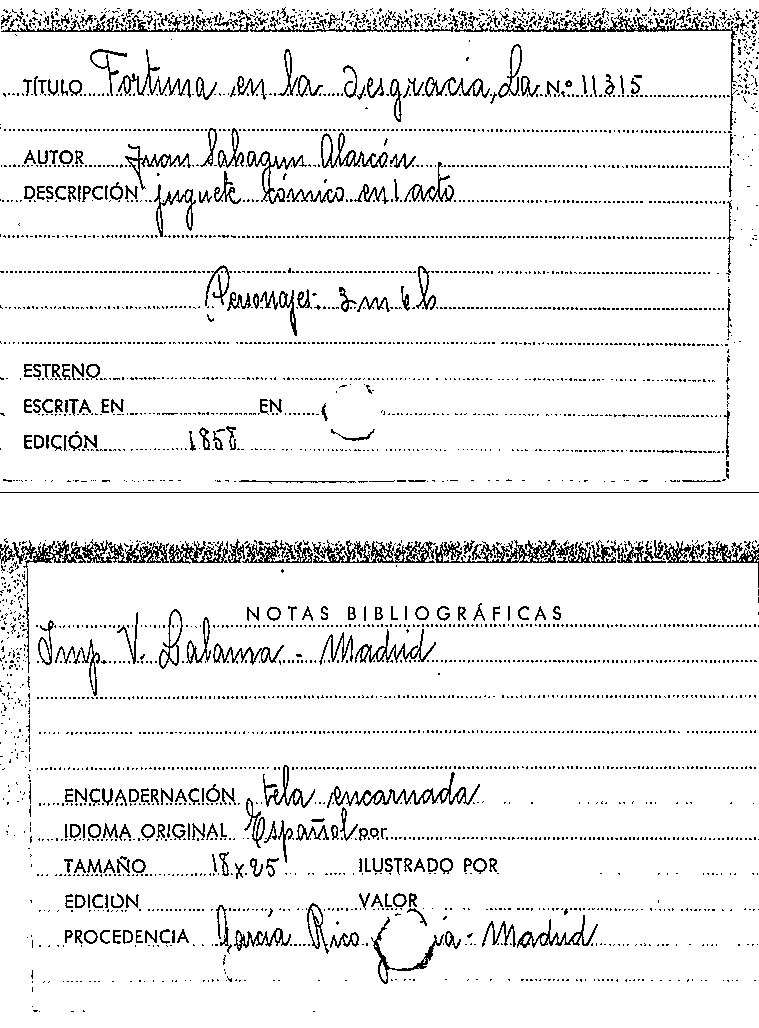 TÍTULO Fortuna en la desgracia, La N.º 11315
AUTOR Juan Sahagun Alarcón
DESCRIPCIÓN juguete cómico en 1 acto
Personajes: 3 m 6 h
ESTRENO
ESCRITA EN EN
EDICIÓN 1858
NOTAS BIBLIOGRÁFICAS
Imp. V. Lalama - Madrid
ENCUADERNACIÓN tela encarnada
IDIOMA ORIGINAL Español por
TAMAÑO 18 x 25 ILUSTRADO POR
EDICION VALOR
PROCEDENCIA García Rico - Madrid